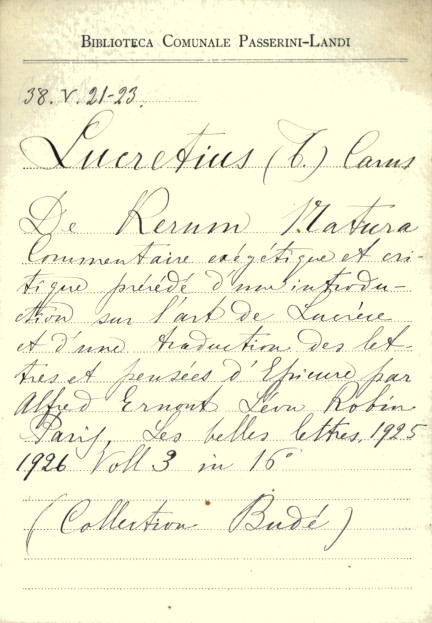 BIBLIOTECA COMUNALE PASSERINI-LANDI
38. V. 21-23.
Lucretius (T.) Carus
De Rerum Natura
Commentaire exégétique et cri-
tique précédé d'une introdu-
ction sur l'art de Lucrèce
et d'une traduction des let-
tres et pensées d'Epicure par
Alfred Ernout Léon Robin
Paris, Les belles lettres, 1925
1926 Voll 3 in 16°
(Collection Budé)